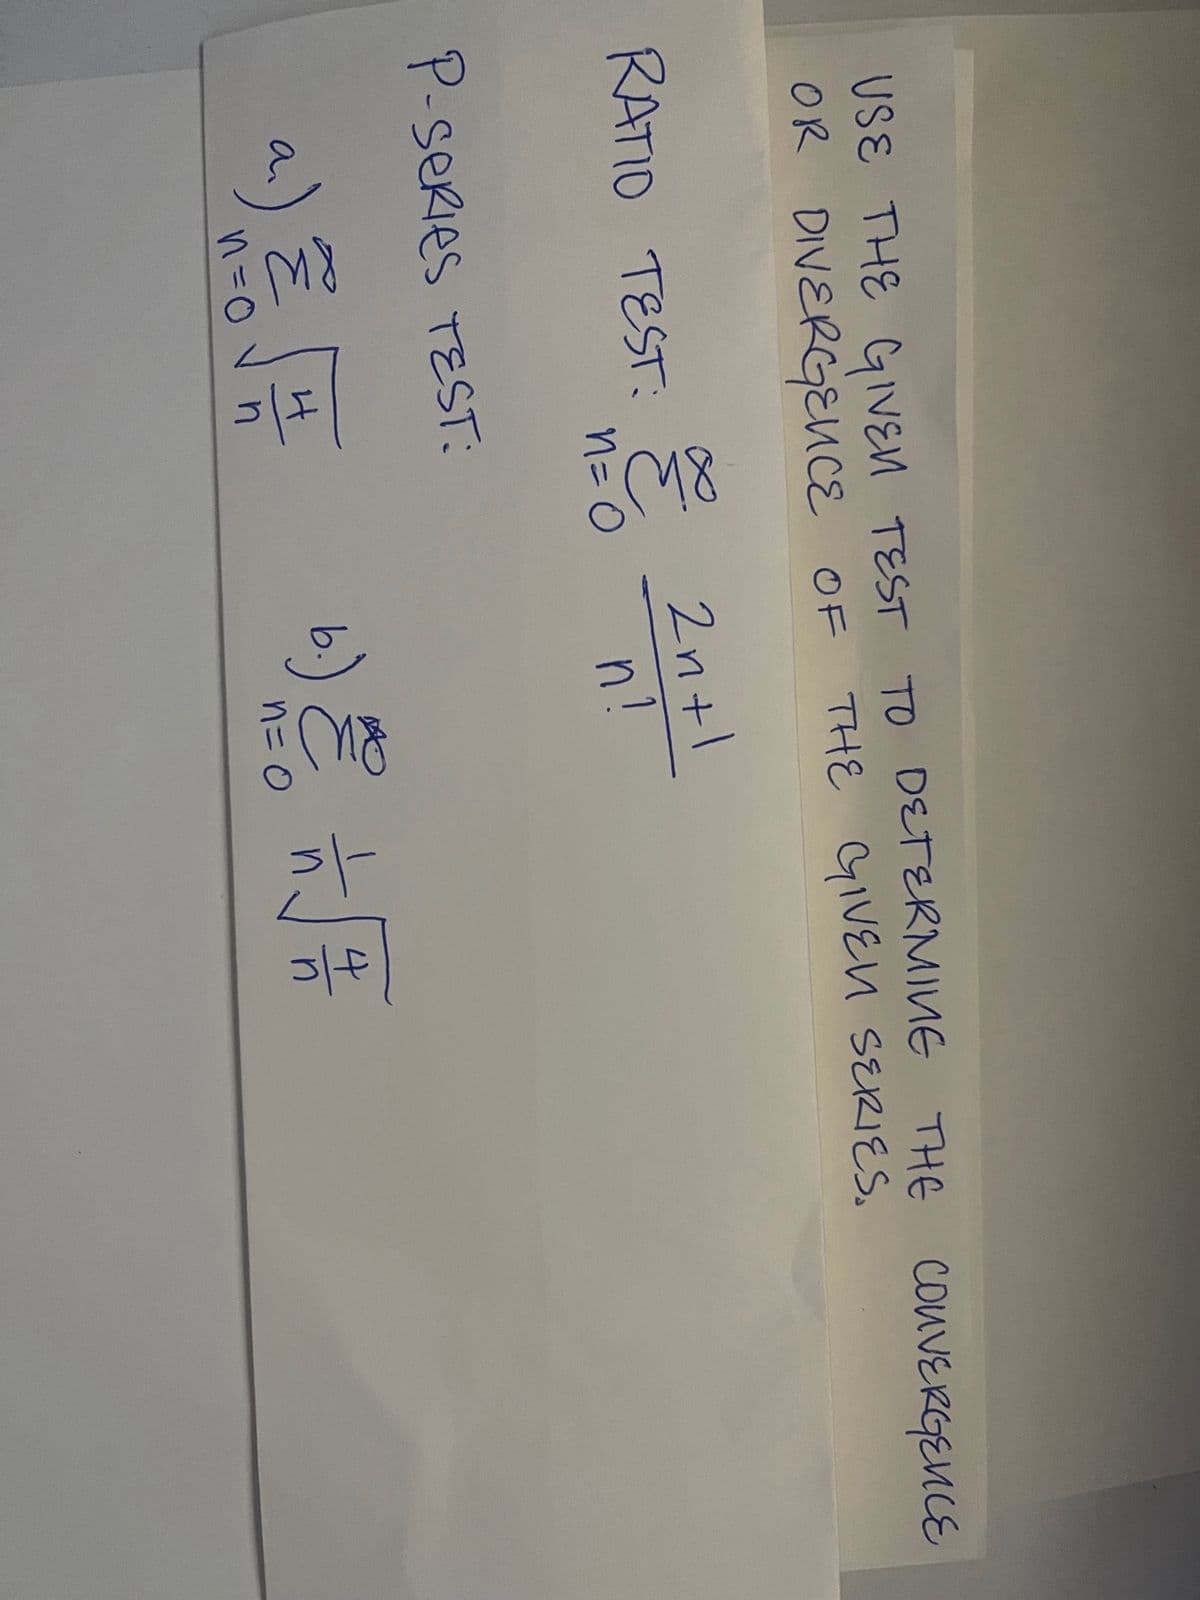 USE THE GIVEN TEST TO DETERMINE THE CONVERGENCE
OR DIVERGENCE OF THE GIVEN SERIES.
RATIO TEST: ∞ Σ n=0 2n+1 / n!
P-SERIES TEST:
a.) ∞ Σ n=0 √(4/n) b.) ∞ Σ n=0 1/n √(4/n)